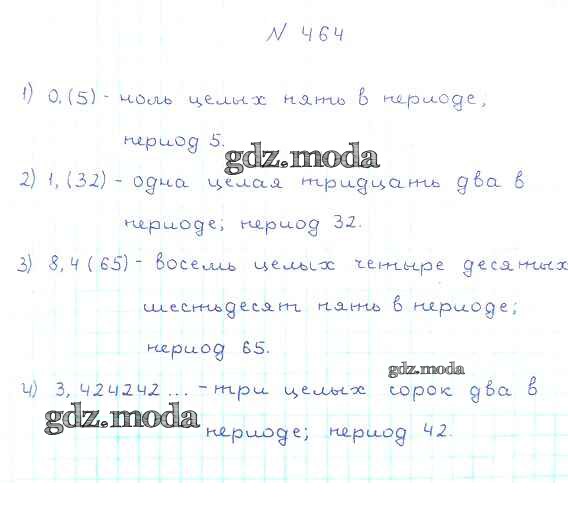 N 464
1) 0,(5) - ноль целых пять в периоде;
период 5.
gdz.moda
2) 1,(32) - одна целая тридцать два в
периоде; период 32.
3) 8,4(65) - восемь целых четыре десятых
шестьдесят пять в периоде;
период 65.
gdz.moda
4) 3,424242... - три целых сорок два в
gdz.moda
периоде; период 42.